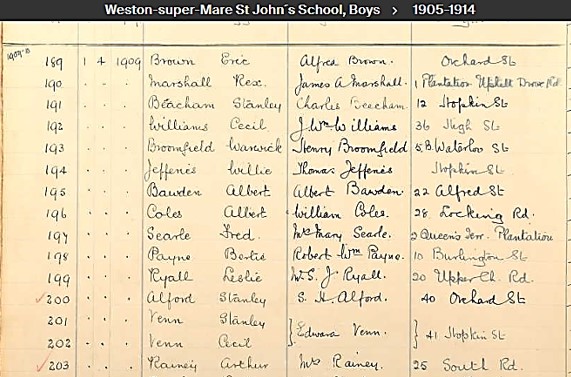 Weston-super-Mare St John´s School, Boys > 1905-1914
189 1 4 1909 Brown Eric Alfred Brown. Orchard St
190 . . . Marshall Rex. James A Marshall. 1 Plantation Uphill Drove Rd.
191 . . . Beacham Stanley Charles Beecham. 12 Hopkin St
192 . . . Williams Cecil J. Wm Williams 36 High St
193 . . . Broomfield Warwick Henry Broomfield 5B Waterloo St
194 . . . Jefferies Willie Thomas Jefferies Hopkin St
195 . . . Bawden Albert Albert Bawden. 22 Alfred St
196 . . . Coles Albert William Coles. 28 Locking Rd.
197 . . . Searle Fred. Mrs Mary Searle. 2 Queen's Terr. Plantation
198 . . . Payne Bertie Robert Wm Payne. 10 Burlington St
199 . . . Ryall Leslie J. Ryall. 20 Upper Ch. Rd.
200 . . . Alford Stanley S. H. Alford. 40 Orchard St
201 . . . Venn Stanley
} Edward Venn. } 41 Hopkin St
202 . . . Venn Cecil
203 . . . Rainey Arthur Mrs Rainey. 25 South Rd.